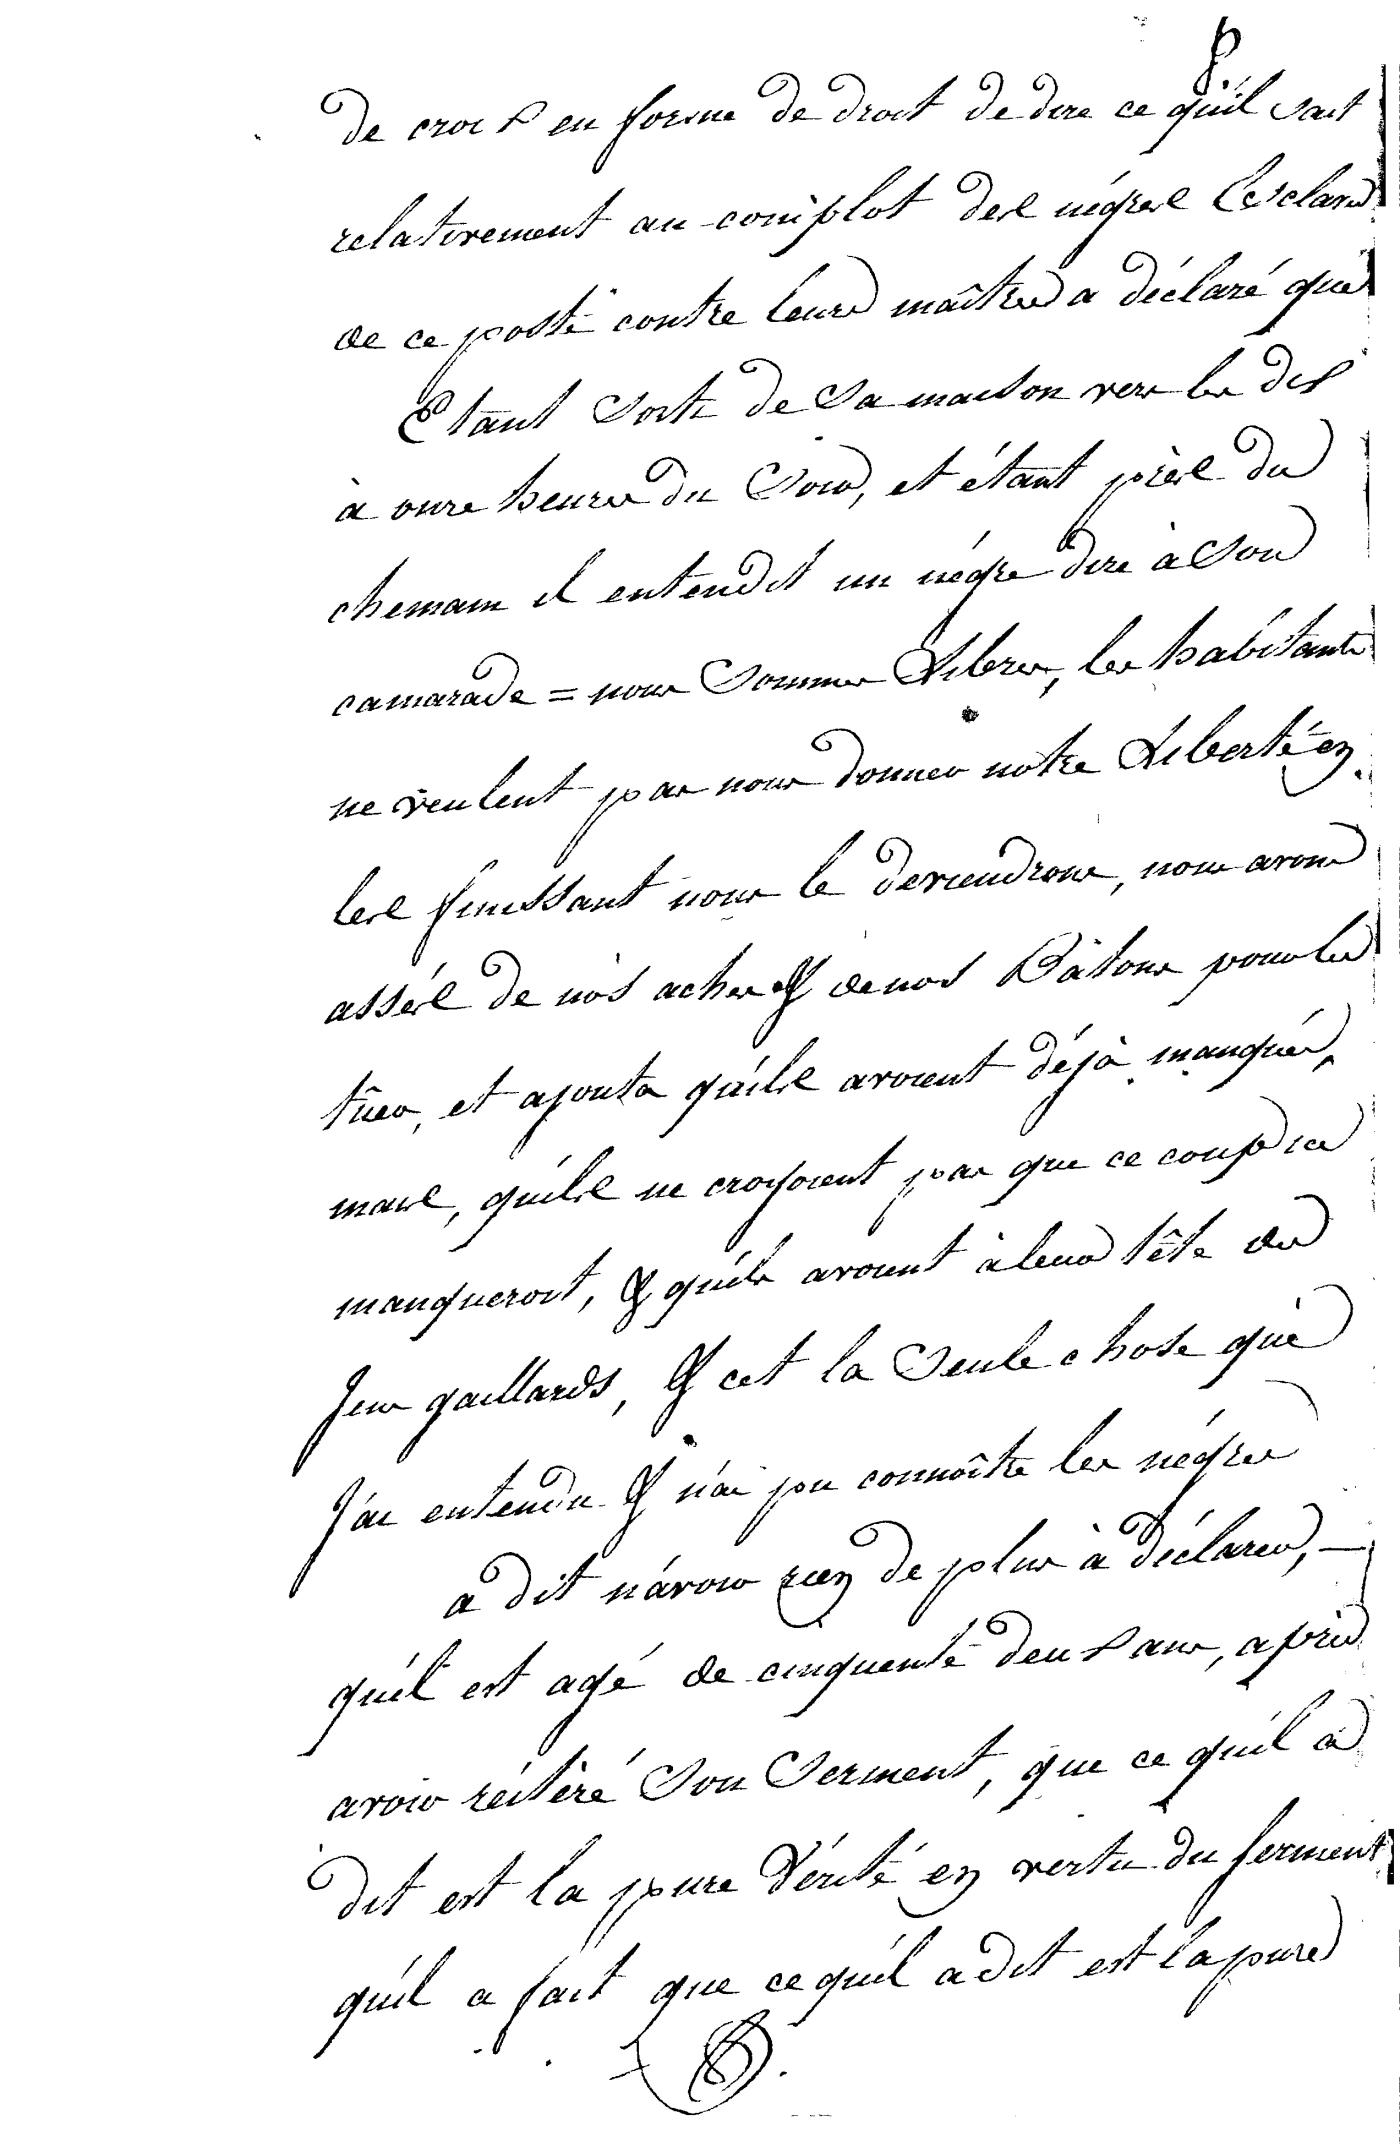 de croix en forme de droit de dire ce qu'il sait
relativement au complot des négres Esclaves
de ce poste contre leurs maîtres a déclaré que
Etant Sorti de Sa maison vers les dix
à onze heures du Soir, et étant près du
chemain il entendit un négre dire à Son
camarade = nous Sommes Libres, les habitants
ne veulent pas nous donner notre Liberté en
les finissant nous le deviendrons, nous avons
assés de nos aches & de nos Bâtons pour les
tûer, et ajouta qu'ils avoient déjà manqués,
mais, qu'ils ne croyoient pas que ce coup ici
manqueroit, & qu'ils avoient à leur tête des
Jeus gaillards, & cet la Seule chose que
J'ai entendu & n'ai pu connoître les négres
a dit n'avoir rien de plus à déclarer, —
qu'il est agé de cinquente deux ans, après
avoir réitéré Son Serment, que ce qu'il a
dit est la pure Vérité en vertu du serment
qu'il a fait que ce qu'il a dit est la pure